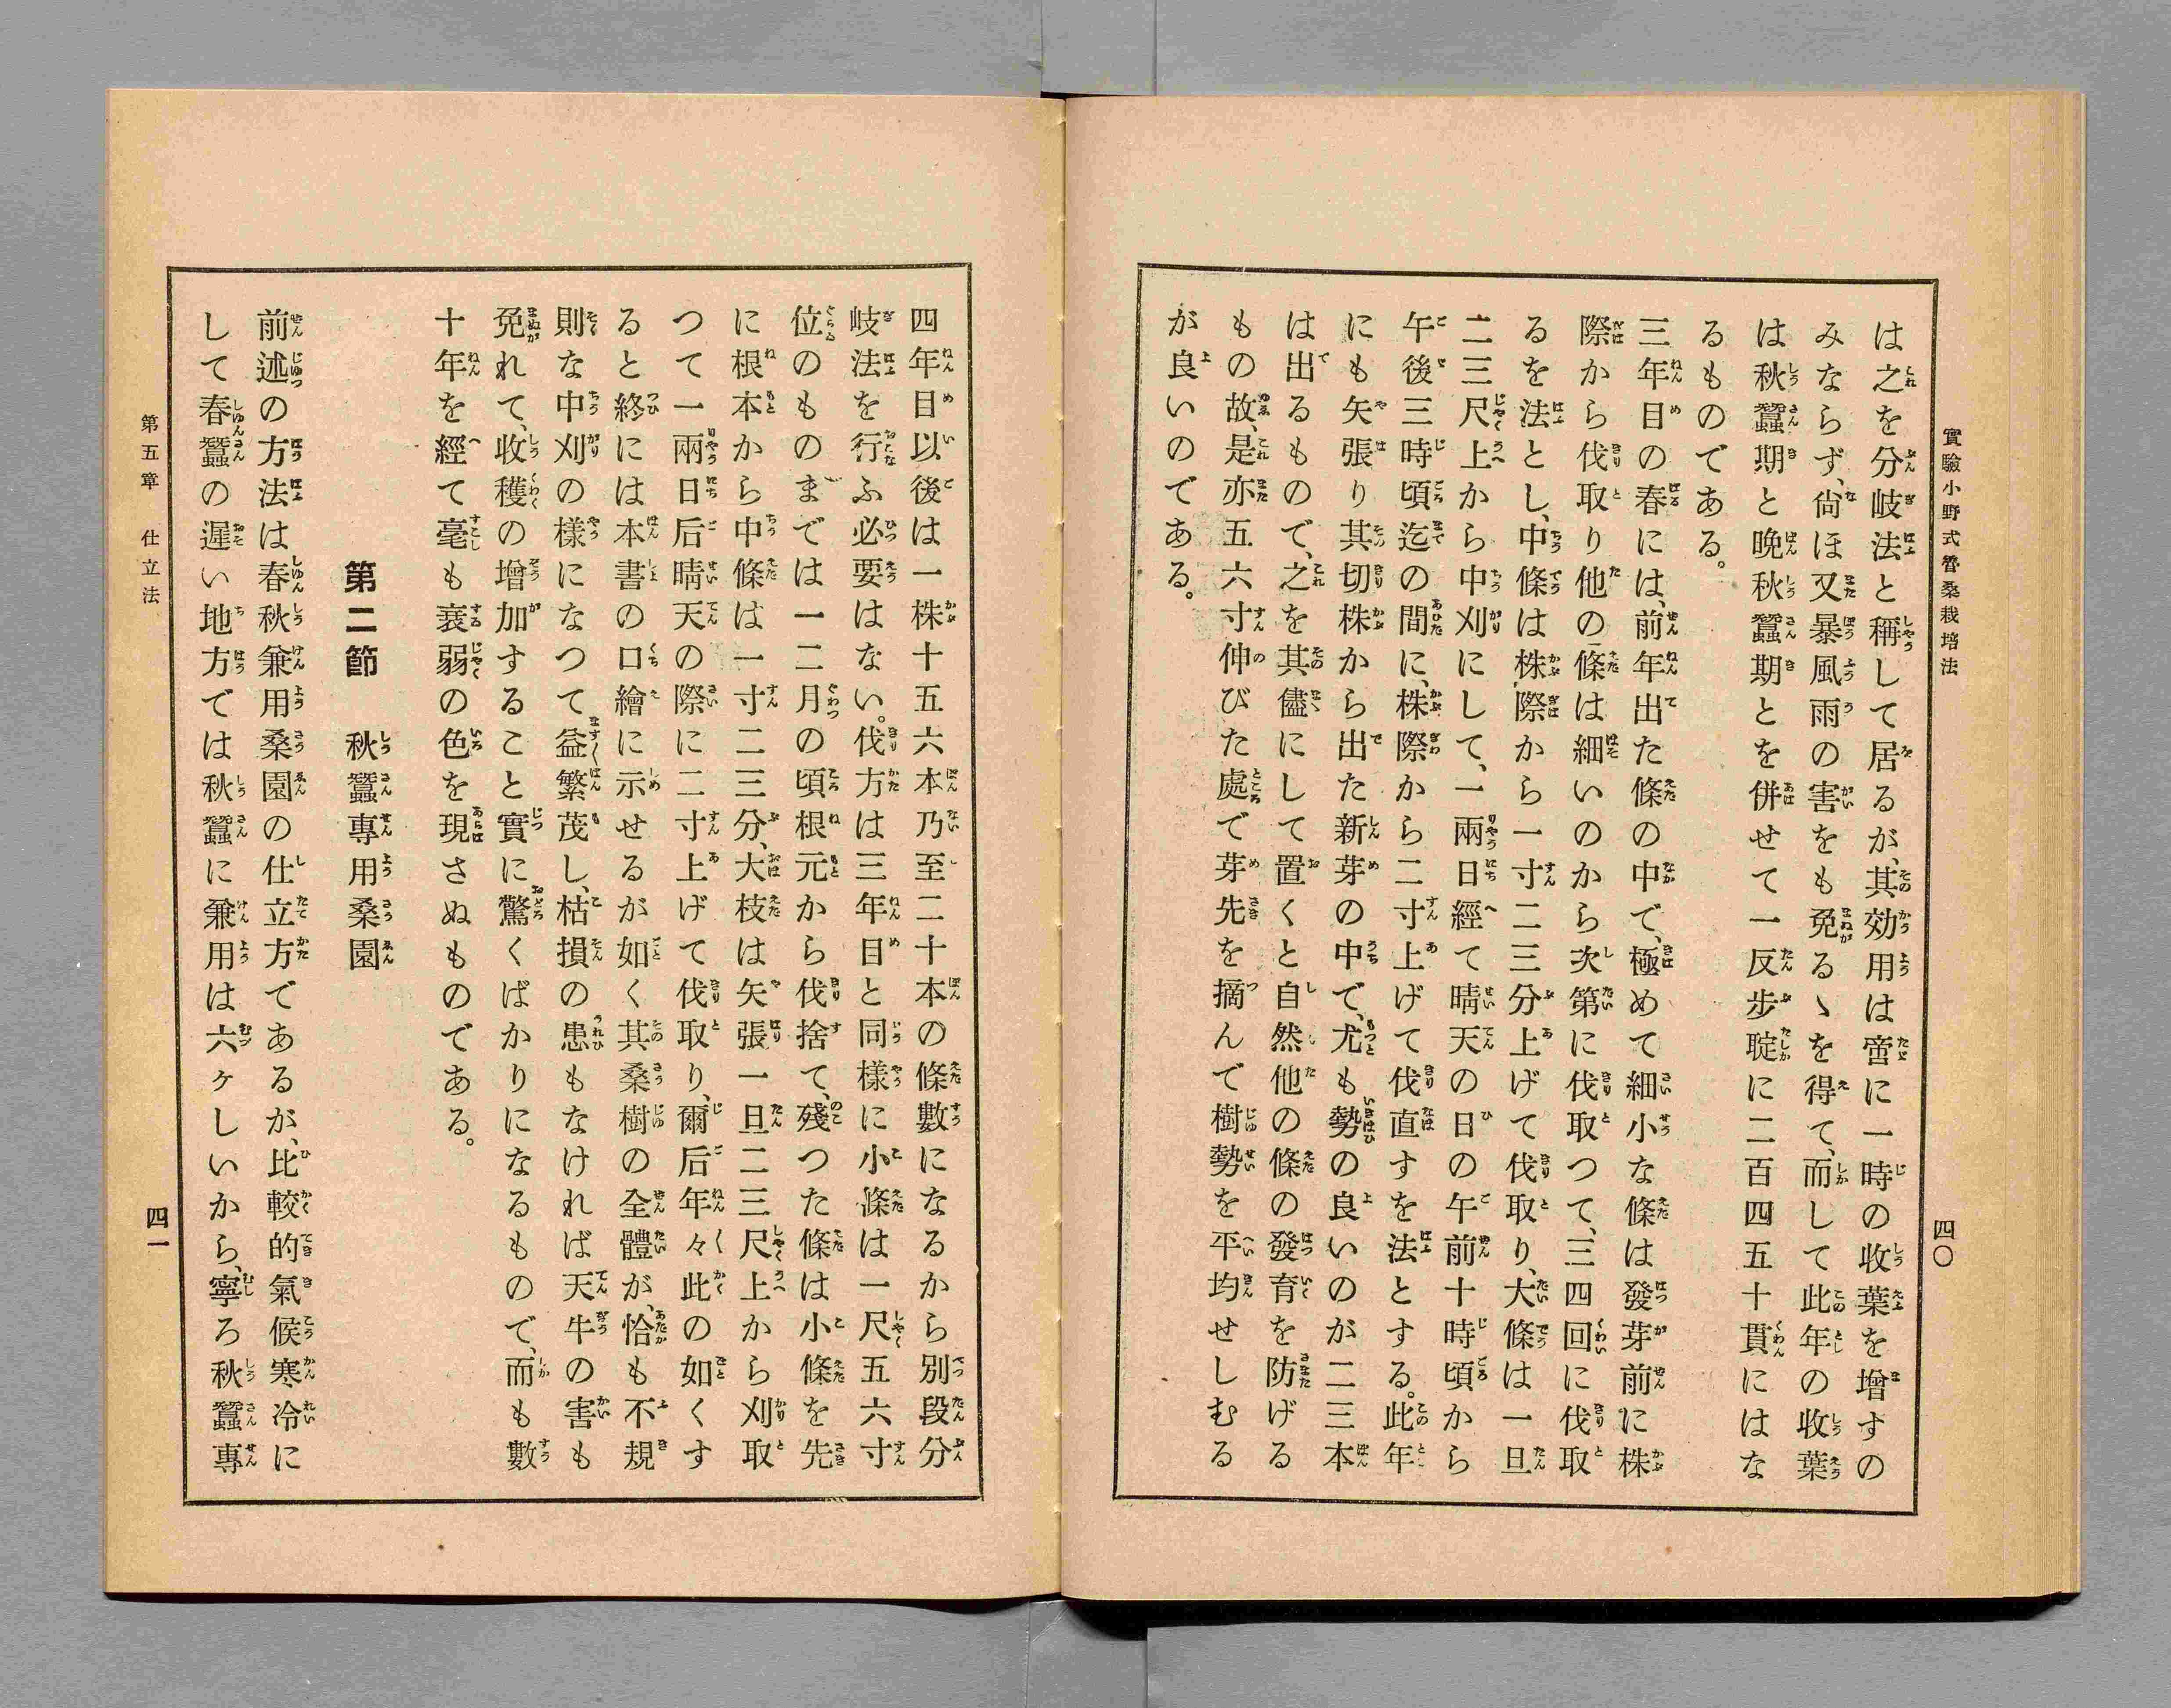 實驗小野式魯桑栽培法
四〇
は之を分岐法と稱して居るが、其効用は啻に一時の收葉を增すの
みならず、尙ほ又暴風雨の害をも免るゝを得て、而して此年の收葉
は秋蠶期と晩秋蠶期とを併せて一反步聢に二百四五十貫にはな
るものである。
三年目の春には、前年出た條の中で、極めて細小な條は發芽前に株
際から伐取り他の條は細いのから次第に伐取つて、三四回に伐取
るを法とし、中條は株際から一寸二三分上げて伐取り、大條は一旦
二三尺上から中刈にして、一兩日經て晴天の日の午前十時頃から
午後三時頃迄の間に、株際から二寸上げて伐直すを法とする。此年
にも矢張り其切株から出た新芽の中で、尤も勢の良いのが二三本
は出るもので、之を其儘にして置くと自然他の條の發育を防げる
もの故、是亦五六寸伸びた處で芽先を摘んで樹勢を平均せしむる
が良いのである。
四年目以後は一株十五六本乃至二十本の條數になるから別段分
岐法を行ふ必要はない。伐方は三年目と同樣に小條は一尺五六寸
位のものまでは一二月の頃根元から伐捨て、殘つた條は小條を先
に根本から中條は一寸二三分、大枝は矢張一旦二三尺上から刈取
つて一兩日后晴天の際に二寸上げて伐取り、爾后年々此の如くす
ると終には本書の口繪に示せるが如く其桑樹の全體が、恰も不規
則な中刈の樣になつて益繁茂し、枯損の患もなければ天牛の害も
免れて、收穫の增加すること實に驚くばかりになるもので、而も數
十年を經て毫も衰弱の色を現さぬものである。
第二節 秋蠶專用桑園
前述の方法は春秋兼用桑園の仕立方であるが、比較的氣候寒冷に
して春蠶の遲い地方では秋蠶に兼用は六ヶしいから、寧ろ秋蠶專
第五章 仕立法
四一